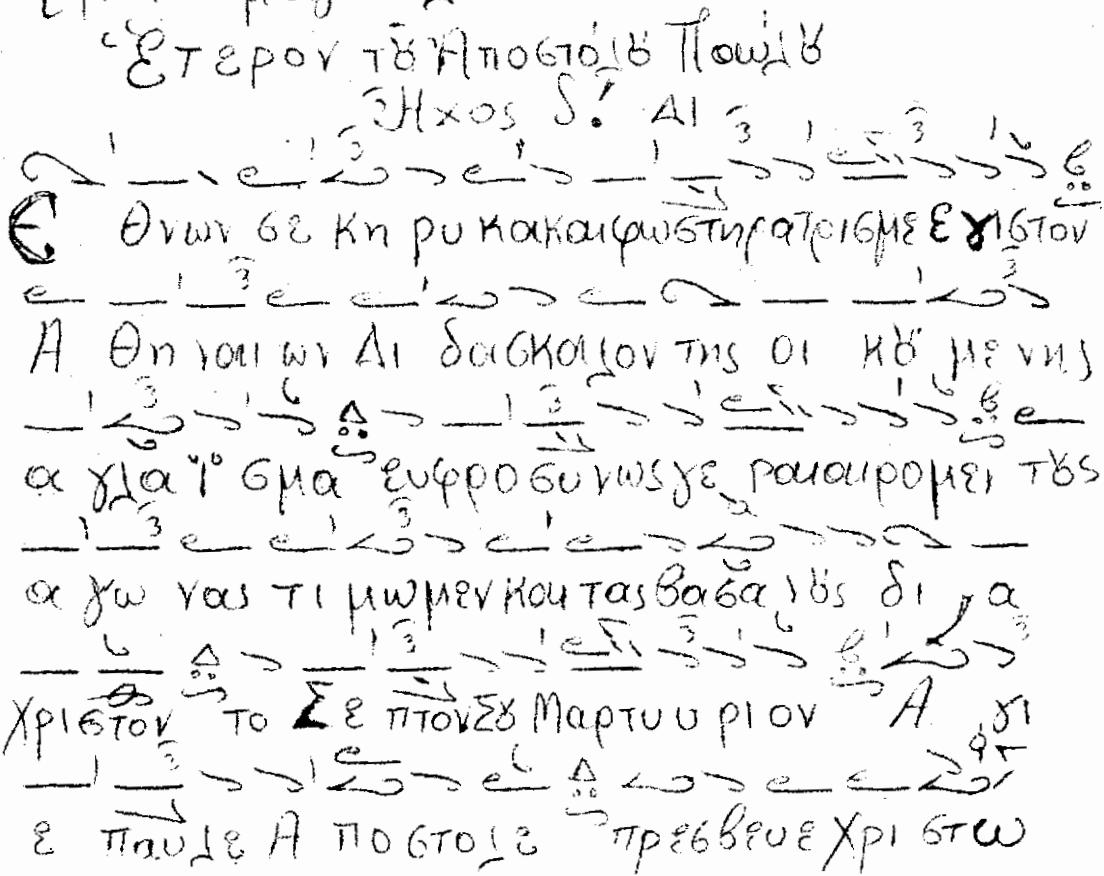 Ἕτερον τȣ Ἀποστόλȣ Παύλȣ
Ἦχος δ! Δι
Ε Θνων σε κη ρυ κα και φωστηρα τρισμε ε γιστον
Α Θη ναι ων Δι δασκαλον της οι κȣ με νης
α γλα ϊ σμα ευφροσυνως γε ραιαιρομεν τȣς
α γω νας τι μωμεν και τας βασα νȣς δι α
Χριστον το Σε πτον Σȣ Μαρτυ υ ριον Α γι
ε Παυλε Α ποστολε πρεσβευε Χρι στω